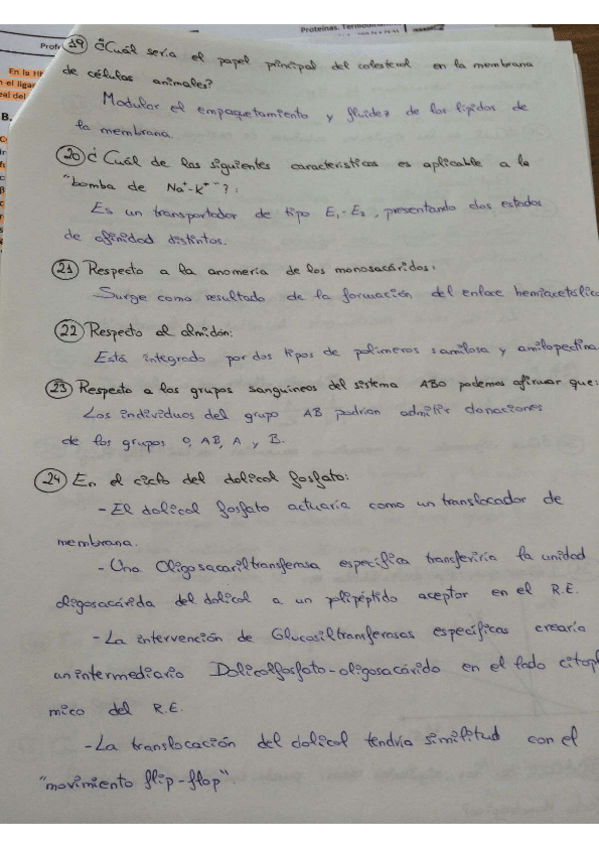 Proteínas. Termodin
Prof
En la H
n el ligan
eal del
B.
19) ¿Cuál sería el papel principal del colesterol en la membrana
de células animales?
Modular el empaquetamiento y fluidez de los lípidos de
la membrana.
20) ¿Cuál de las siguientes características es aplicable a la
"bomba de Na+-K+"?:
Es un transportador de tipo E1-E2, presentando dos estados
de afinidad distintos.
21) Respecto a la anomería de los monosacáridos:
Surge como resultado de la formación del enlace hemiacetálico
22) Respecto al almidón:
Está integrado por dos tipos de polímeros: amilosa y amilopectina
23) Respecto a los grupos sanguíneos del sistema ABO podemos afirmar que:
Los individuos del grupo AB podrían admitir donaciones
de los grupos O, AB, A y B.
24) En el ciclo del dolicol fosfato:
- El dolicol fosfato actuaría como un translocador de
membrana.
- Una Oligosacariltransferasa específica transferiría la unidad
oligosacárida del dolicol a un polipéptido aceptor en el R.E.
- La intervención de Glucosiltransferasas específicas crearía
un intermediario Dolicolfosfato-oligosacárido en el lado citopl
mico del R.E.
- La translocación del dolicol tendría similitud con el
"movimiento flip-flop"